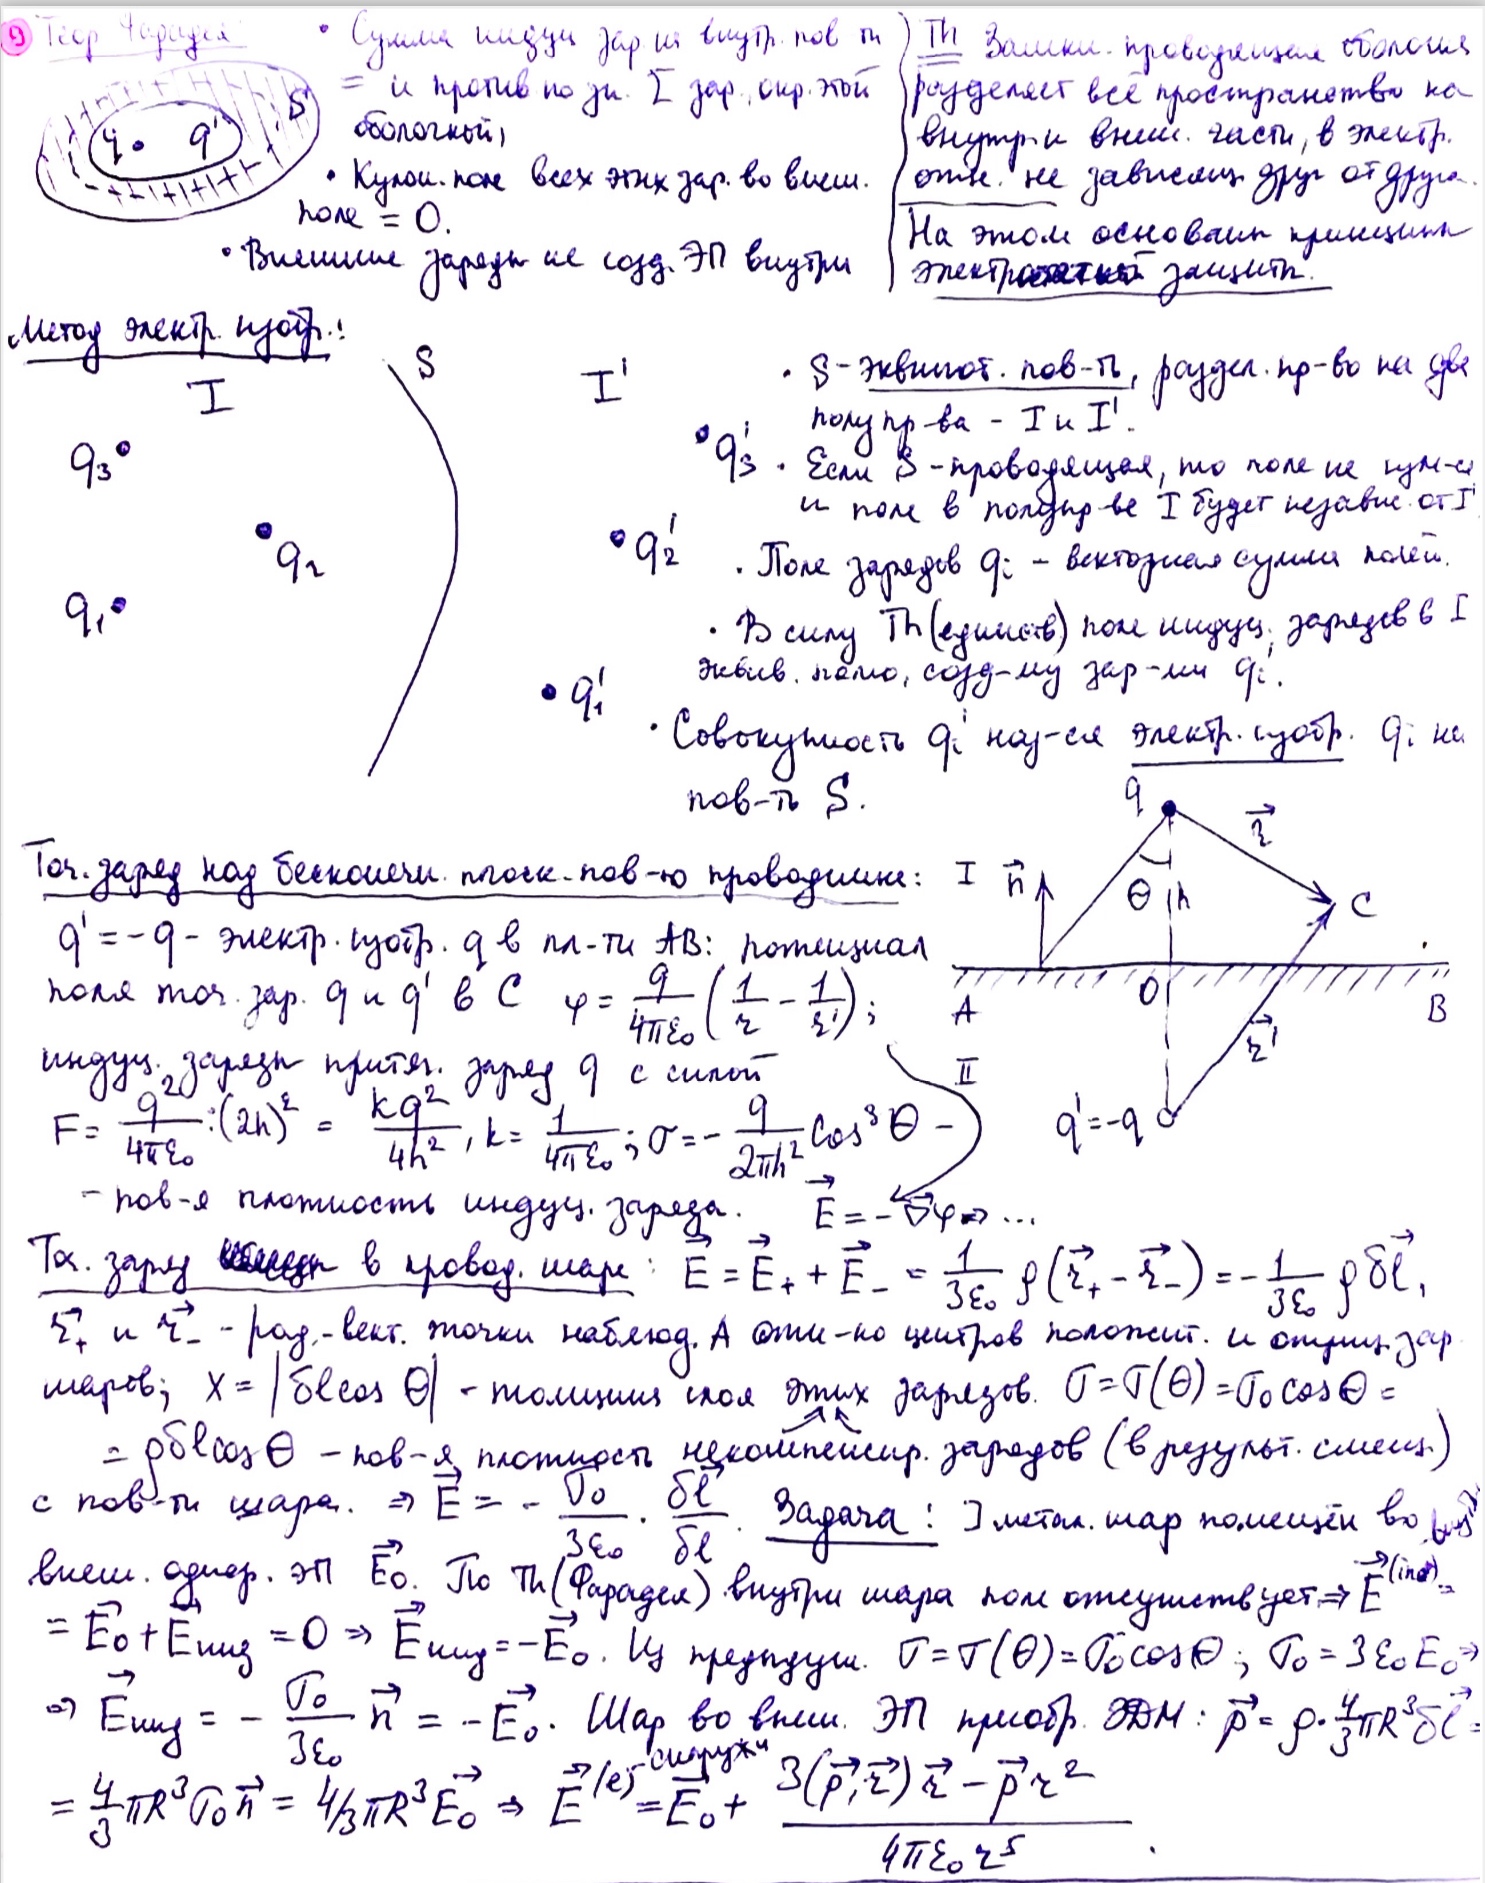 9 Теор Фарадея
• Сумма индуц зар на внутр. пов-ти
= и противоп зн. Σ зар., окр. этой
оболочкой,
• Кулон. поле всех этих зар. во внеш.
поле = 0.
• Внешние заряды не созд. ЭП внутри
S'
q q'
Th Замкн. проводящая оболочка
разделяет всё пространство на
внутр. и внеш. части, в электр.
отн. не зависящ. друг от друга.
На этом основаны принципы
защиты.
Метод электр. изобр.:
I S I'
q₃ q₃'
q₂ q₂'
q₁ q₁'
• S - эквипот. пов-ть, раздел. пр-во на две
полупр-ва - I и I'.
• Если S - проводящая, то поле не изм-ся
и поле в полупр-ве I будет независ. от I'
• Поле зарядов qᵢ - векторная сумма полей.
• В силу Th (единств) поле индуц. зарядов в I
эквив. полю, созд-му зар-ми qᵢ'.
• Совокупность qᵢ' наз-ся электр. изобр. qᵢ на
пов-ть S.
Точ. заряд над бесконечн. плоск. пов-ю проводника:
q' = -q - электр. изобр. q в пл-ти AB: потенциал
поля точ. зар. q и q' в C φ = q/4πε₀ (1/r - 1/r');
индуц. заряды притяг. заряд q с силой
F = q²/4πε₀ : (2h)² = kq²/4h², k = 1/4πε₀; σ = - q/2πh² cos³θ -
- пов-я плотность индуц. заряда. E⃗ = -∇⃗φ ⇒ ...
q
r⃗
I n⃗ θ h C
A O B
r⃗'
II
q' = -q
Точ. заряд в провод. шаре: E⃗ = E⃗₊ + E⃗₋ = 1/3ε₀ ρ(r⃗₊ - r⃗₋) = - 1/3ε₀ ρδl⃗,
r⃗₊ и r⃗₋ - рад.-вект. точки наблюд. A отн-но центров положит. и отриц. зар.
шаров; x = |δl cos θ| - толщина слоя этих зарядов. σ = σ(θ) = σ₀ cos θ =
= ρδl cos θ - пов-я плотность некомпенсир. зарядов (в результ. смещ.)
с пов-ти шара. ⇒ E⃗ = - σ₀/3ε₀ · δl⃗/δl. Задача: ] метал. шар помещён во
внеш. однор. ЭП E⃗₀. По Th (Фарадея) внутри шара поле отсутствует ⇒ E⃗⁽ⁱⁿᵗ⁾ =
= E⃗₀ + E⃗инд = 0 ⇒ E⃗инд = -E⃗₀. Из предыдущ. σ = σ(θ) = σ₀ cos θ; σ₀ = 3ε₀E₀ ⇒
⇒ E⃗инд = - σ₀/3ε₀ n⃗ = -E⃗₀. Шар во внеш. ЭП приобр. ЭДМ: p⃗ = ρ · 4/3 πR³ δl⃗ =
= 4/3 πR³ σ₀ n⃗ = 4/3 πR³ E⃗₀ ⇒ E⃗⁽ᵉ⁾ - снаружи = E⃗₀ + (3(p⃗, r⃗) r⃗ - p⃗r²)/4πε₀r⁵.